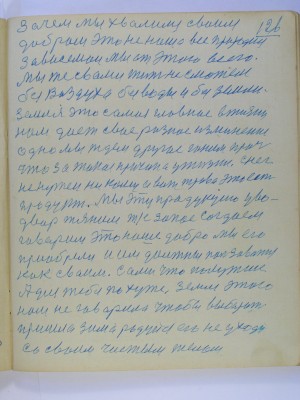 126
Зачем мы хвалимся своим
добром Это не наше все природы
Зависаем мы от Этого всего.
Мы же с вами жить не сможем
без Воздуха без воды и без Земли.
Земля это самая главное в жизни
нам дает свое разное изменение
одно мы ждем другое гоним проч
что за такая причина у жизни. Снег
не нужен никому а вот трава это есть
продукт. Мы эту продукцию
двиг запас создаем
говорим Это наше добро мы его
приобрели и им должны
как своим. Сами что получше
А для тебя похуже. Земля этого
нам не говорила чтобы выбират
пришла зима радуйся ей не уходи
со своим чистым телом